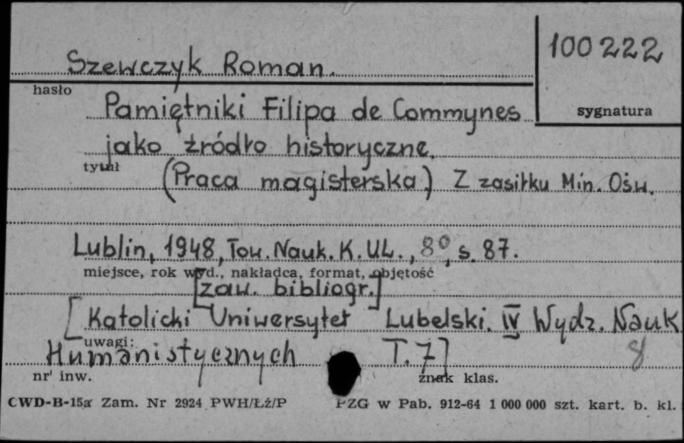 Szewczyk Roman.
100222
hasło
sygnatura
Pamiętniki Filipa de Commynes
jako źródło historyczne.
tytuł
(Praca magisterska) Z zasiłku Min. Ośw.
Lublin, 1948, Tow. Nauk. K. UL., 8°, s. 87.
miejsce, rok wyd., nakładca, format, objętość
[zaw. bibliogr.]
[Katolicki Uniwersytet Lubelski. IV Wydz. Nauk
uwagi:
Humanistycznych T. 7]
8
nr inw.
znak klas.
CWD-B-15a Zam. Nr 2924 PWH/Łż/P PZG w Pab. 912-64 1 000 000 szt. kart. b. kl.